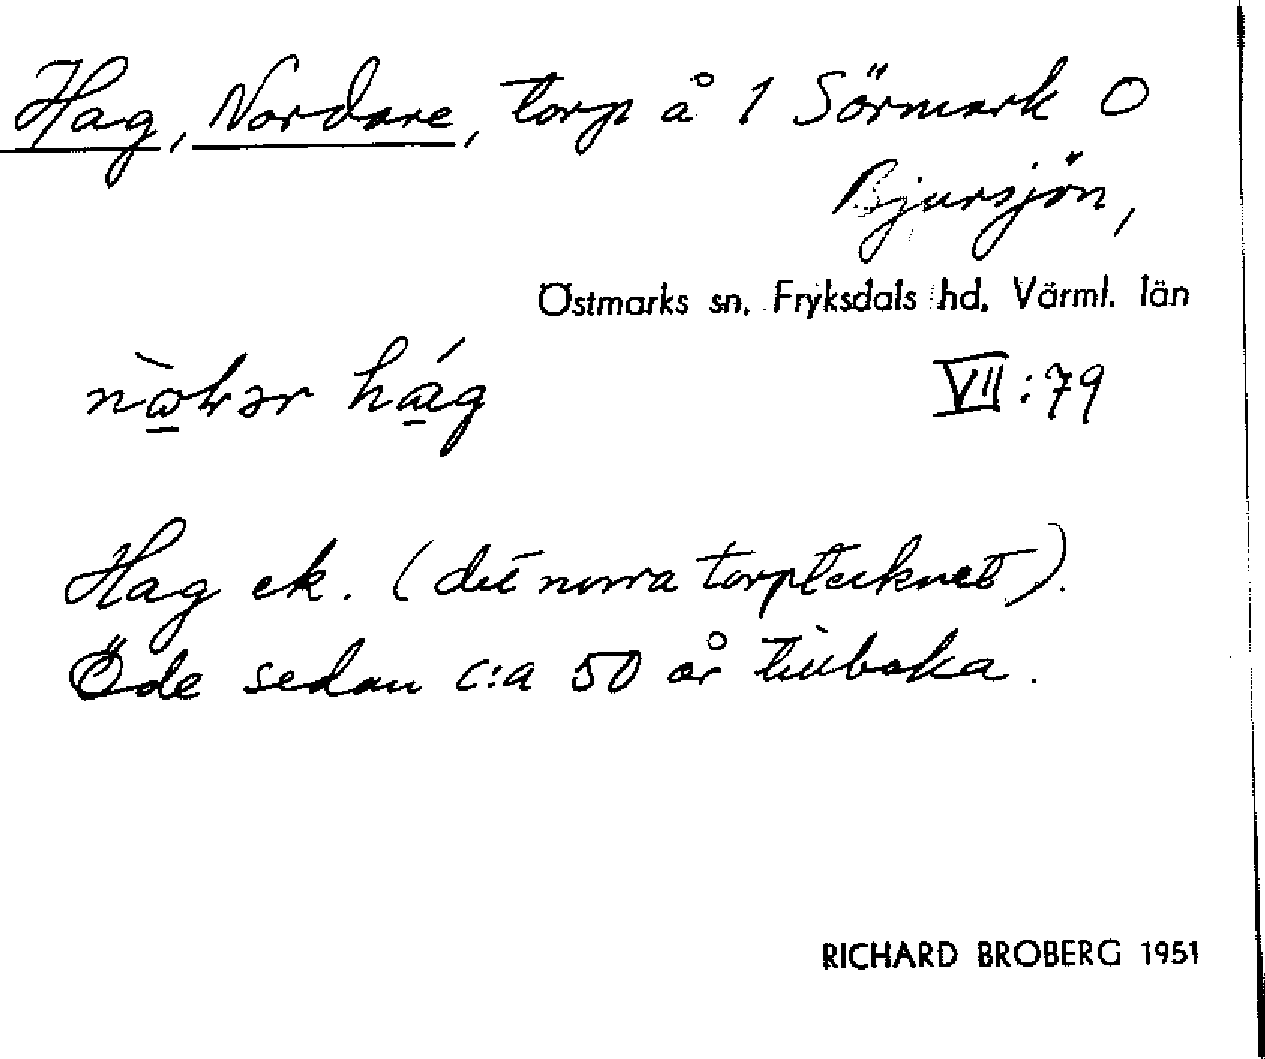 Hag, Nordare, torp å 1 Sörmark O
Bjursjön,
Östmarks sn, Fryksdals hd, Värml. län
hág VII:79
Hag ek. (det norra torptecknet).
Öde sedan c:a 50 år tillbaka.
RICHARD BROBERG 1951